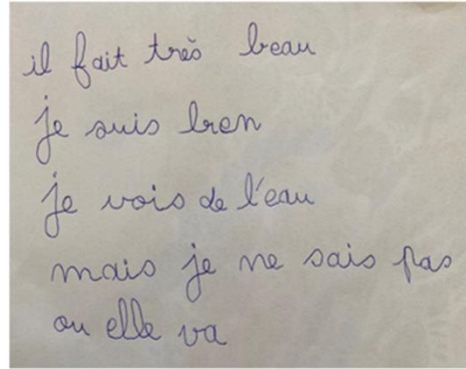 il fait très beau
je suis bien
je vois de l'eau
mais je ne sais pas
ou elle va